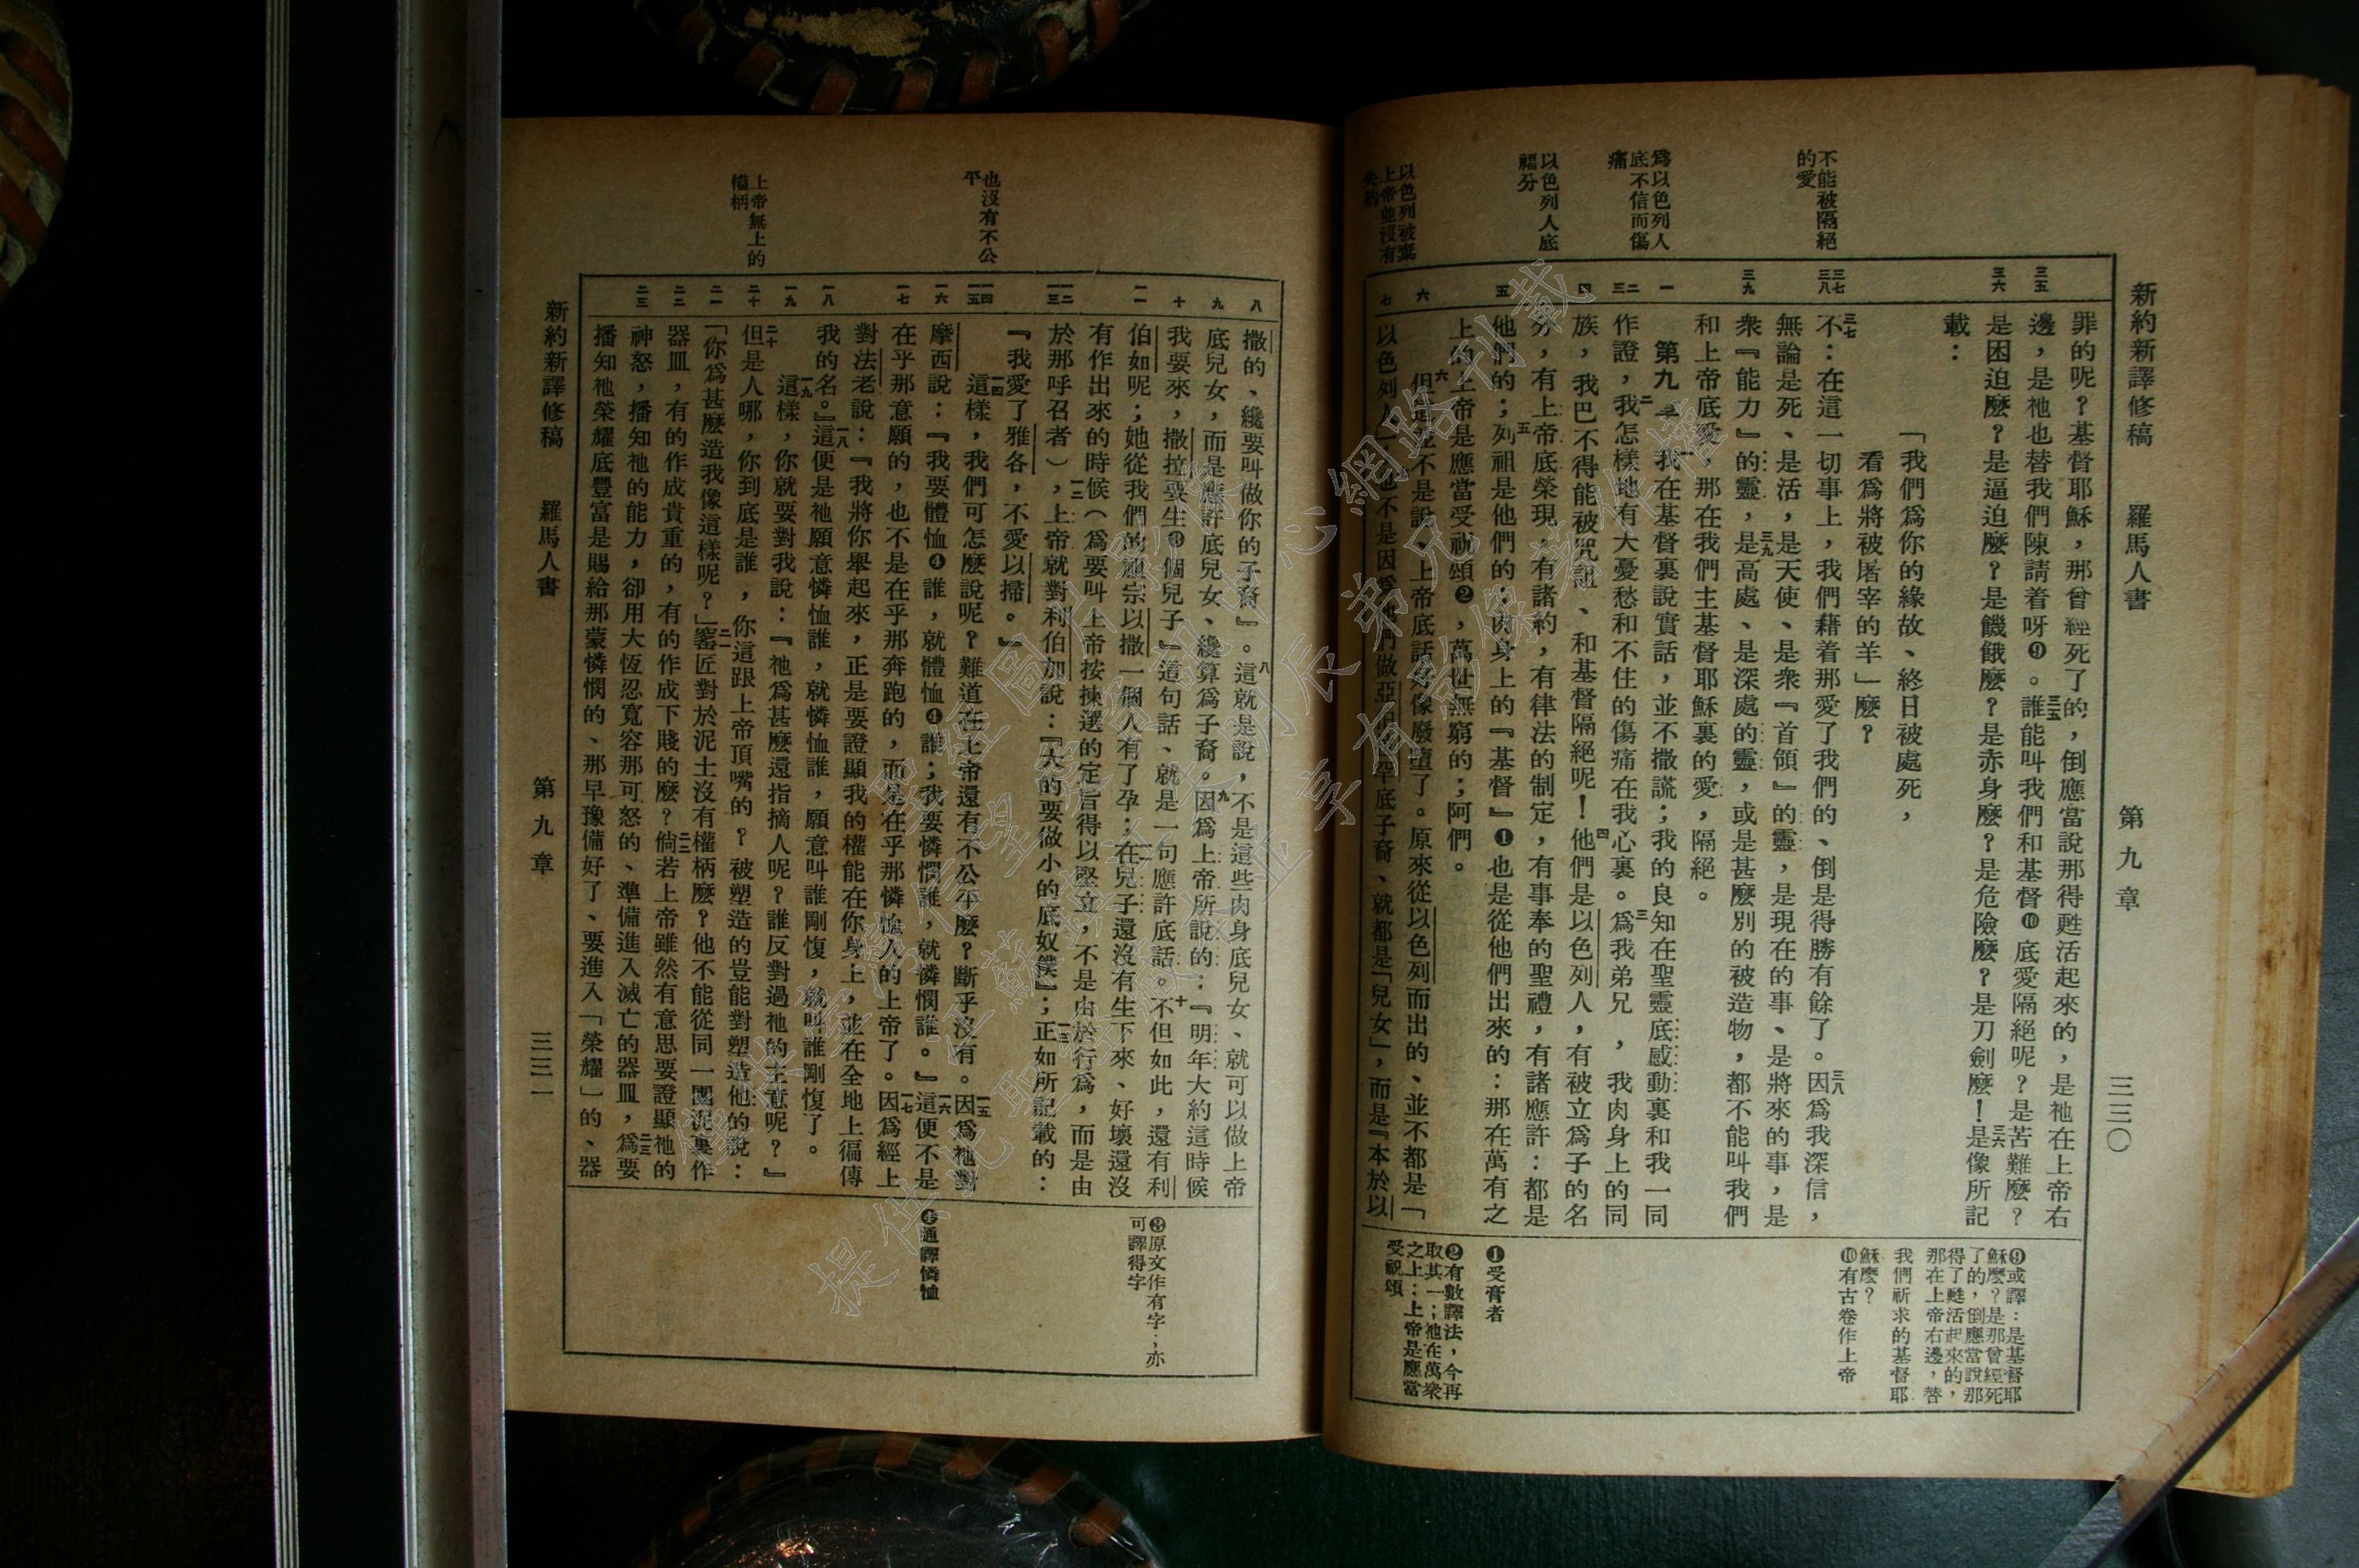 新約新譯修稿　羅馬人書　第九章　三三〇
不能被隔絕
的愛
爲以色列人
底不信而傷
痛
以色列人底
福分
以色列被棄
上帝並沒有
失約
三五
三六
三七
三八
三九
一
二
三
四
五
六
七
罪的呢？基督耶穌，那曾經死了的，倒應當說那得甦活起來的，是祂在上帝右
邊，是祂也替我們陳請着呀❾。三五誰能叫我們和基督❿底愛隔絕呢？是苦難麼？
是困迫麼？是逼迫麼？是饑餓麼？是赤身麼？是危險麼？是刀劍麼！三六是像所記
載：
「我們爲你的緣故、終日被處死，
看爲將被屠宰的羊」麼？
三七不：在這一切事上，我們藉着那愛了我們的、倒是得勝有餘了。三八因爲我深信，
無論是死、是活，是天使、是衆『首領』的靈，是現在的事、是將來的事，是
衆『能力』的靈，三九是高處、是深處的靈，或是甚麼別的被造物，都不能叫我們
和上帝底愛，那在我們主基督耶穌裏的愛，隔絕。
第九章　一我在基督裏說實話，並不撒謊；我的良知在聖靈底感動裏和我一同
作證，二我怎樣地有大憂愁和不住的傷痛在我心裏。三爲我弟兄，我肉身上的同
族，我巴不得能被咒詛、和基督隔絕呢！四他們是以色列人，有被立爲子的名
分，有上帝底榮現，有諸約，有律法的制定，有事奉的聖禮，有諸應許：都是
他們的；五列祖是他們的：肉身上的『基督』❶也是從他們出來的：那在萬有之
上的上帝是應當受祝頌❷，萬世無窮的；阿們。
六但這並不是說、上帝底話好像廢墮了。原來從以色列而出的、並不都是「
以色列人」；七也不是因爲他們做亞伯拉罕底子裔、就都是「兒女」，而是『本於以
❾或譯：是基督耶
穌麼？是那曾經死
了的，倒應當說那
得了甦活起來的，
那在上帝右邊，替
我們祈求的基督耶
穌麼？
❿有古卷作上帝
❶受膏者
❷有數譯法，今再
取其一；祂在萬衆
之上；上帝是應當
受祝頌
新約新譯修稿　羅馬人書　第九章　三三一
也沒有不公
平
上帝無上的
權柄
八
九
十
一一
一二
一三
一四
一五
一六
一七
一八
一九
二十
二一
二二
二三
撒的、纔要叫做你的子裔』。八這就是說，不是這些肉身底兒女、就可以做上帝
底兒女，而是應許底兒女、纔算爲子裔。九因爲上帝所說的：『明年大約這時候
我要來，撒拉要生❸個兒子』這句話、就是一句應許底話。十不但如此，還有利
伯如呢；她從我們的祖宗以撒一個人有了孕；一一在兒子還沒有生下來、好壞還沒
有作出來的時候（爲要叫上帝按揀選的定旨得以堅立，不是由於行爲，而是由
於那呼召者），一二上帝就對利伯加說：『大的要做小的底奴僕』；一三正如所記載的：
『我愛了雅各，不愛以掃。』
一四這樣，我們可怎麼說呢？難道在上帝還有不公平麼？斷乎沒有。一五因爲祂對
摩西說：『我要體恤❹誰，就體恤❹誰；我要憐憫誰，就憐憫誰。』一六這便不是
在乎那意願的，也不是在乎那奔跑的，而是在乎那憐恤人的上帝了。一七因爲經上
對法老說：『我將你舉起來，正是要證顯我的權能在你身上，並在全地上徧傳
我的名。』一八這便是祂願意憐恤誰，就憐恤誰，願意叫誰剛愎，就叫誰剛愎了。
一九這樣，你就要對我說：『祂爲甚麼還指摘人呢？誰反對過祂的主意呢？』
二十但是人哪，你到底是誰，你這跟上帝頂嘴的？被塑造的豈能對塑造他的說：
「你爲甚麼造我像這樣呢？」二一窰匠對於泥土沒有權柄麼？他不能從同一團泥裏作
器皿，有的作成貴重的，有的作成下賤的麼？二二倘若上帝雖然有意思要證顯祂的
神怒，播知祂的能力，卻用大恆忍寬容那可怒的、準備進入滅亡的器皿，二三爲要
播知祂榮耀底豐富是賜給那蒙憐憫的、那早豫備好了、要進入「榮耀」的、器
❸原文作有字；亦
可譯得字
❹通譯憐恤